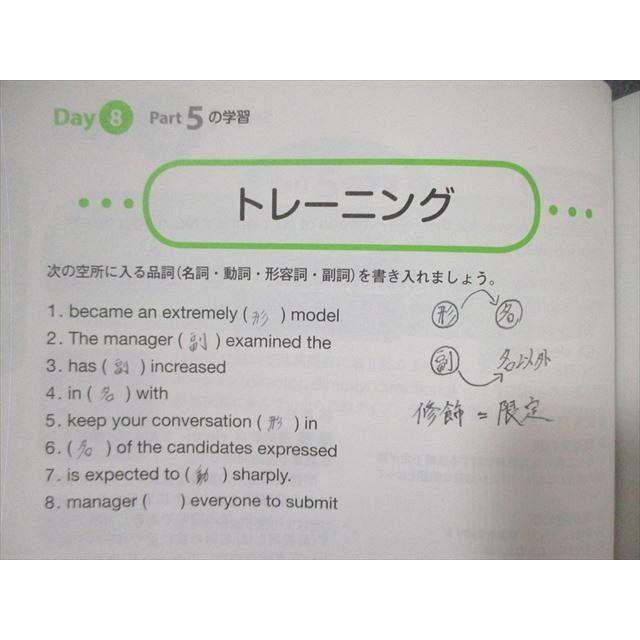 Day 8 Part 5 の学習
トレーニング
次の空所に入る品詞(名詞・動詞・形容詞・副詞)を書き入れましょう。
1. became an extremely ( 形 ) model
2. The manager ( 副 ) examined the
3. has ( 副 ) increased
4. in ( 名 ) with
5. keep your conversation ( 形 ) in
6. ( 名 ) of the candidates expressed
7. is expected to ( 動 ) sharply.
8. manager ( ) everyone to submit
形 名
副 名以外
修飾 = 限定